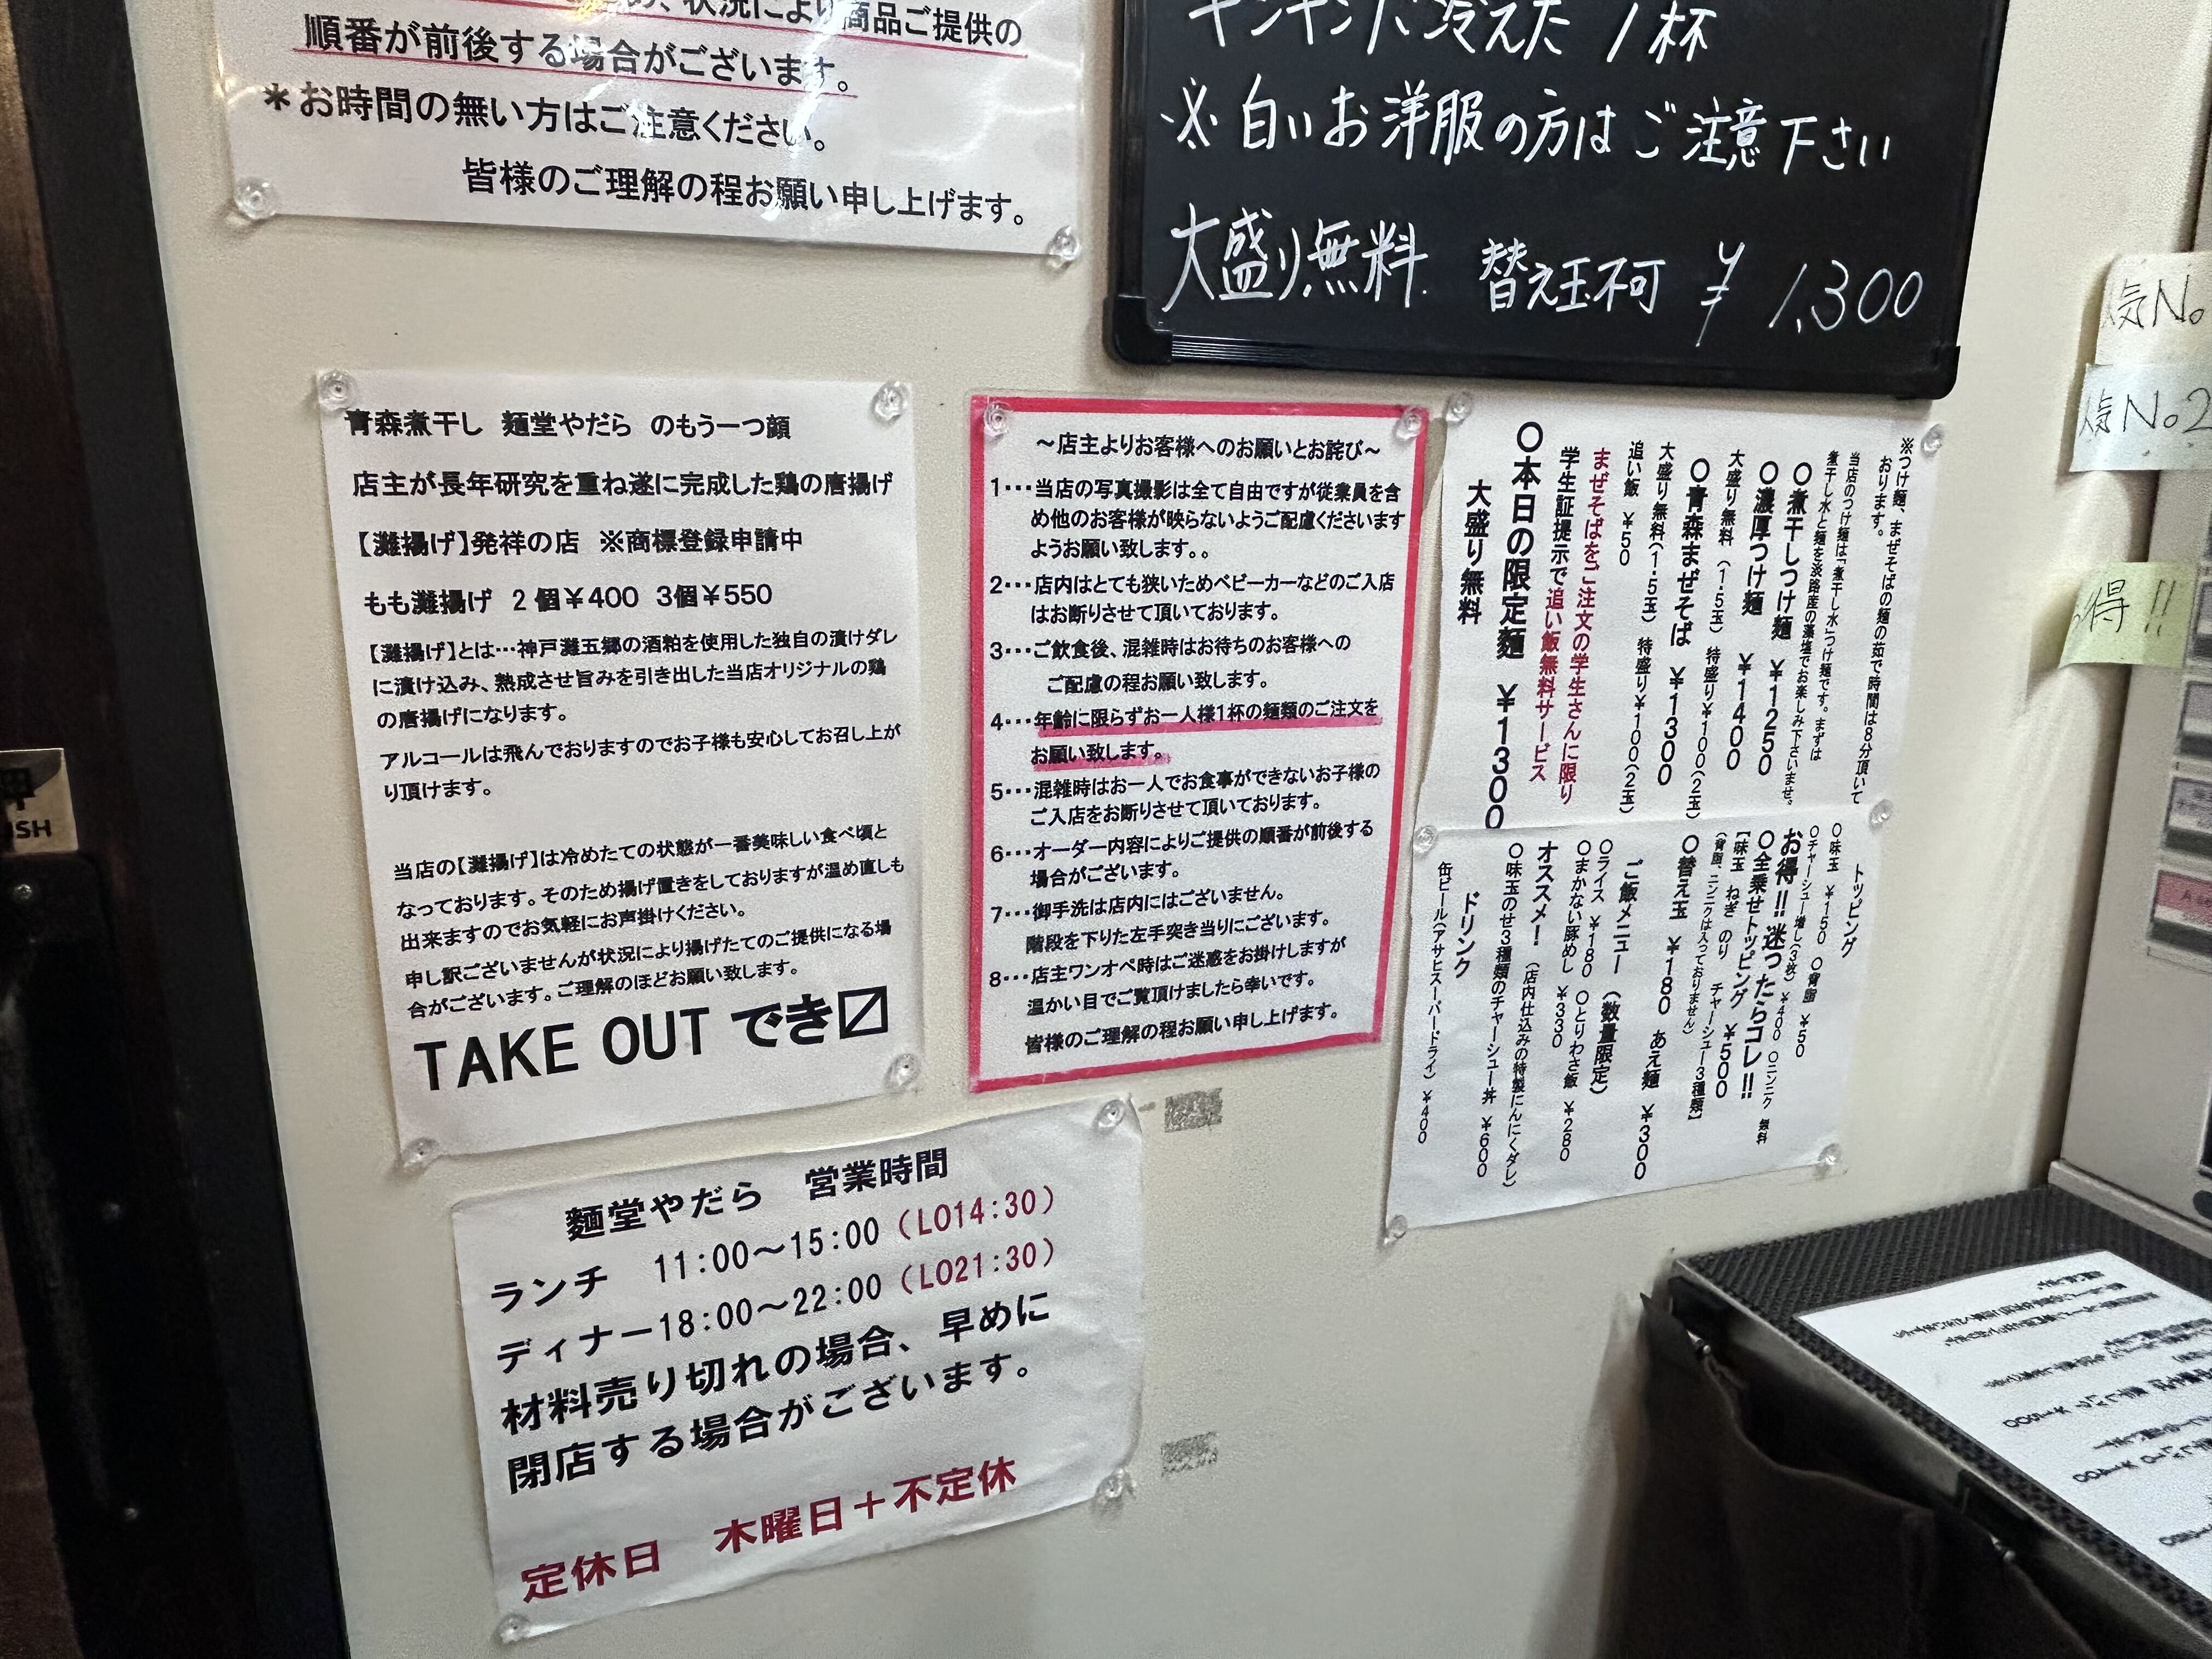 、状況により商品ご提供の
順番が前後する場合がございます。
＊お時間の無い方はご注意ください。
皆様のご理解の程お願い申し上げます。
キンキンに冷えた 1杯
※白いお洋服の方はご注意下さい
大盛り無料 替え玉不可 ¥1,300
青森煮干し 麺堂やだら のもう一つ顔
店主が長年研究を重ね遂に完成した鶏の唐揚げ
【灘揚げ】発祥の店 ※商標登録申請中
もも灘揚げ 2個¥400 3個¥550
【灘揚げ】とは…神戸灘五郷の酒粕を使用した独自の漬けダレ
に漬け込み、熟成させ旨みを引き出した当店オリジナルの鶏
の唐揚げになります。
アルコールは飛んでおりますのでお子様も安心してお召し上が
り頂けます。
当店の【灘揚げ】は冷めたての状態が一番美味しい食べ頃と
なっております。そのため揚げ置きをしておりますが温め直しも
出来ますのでお気軽にお声掛けください。
申し訳ございませんが状況により揚げたてのご提供になる場
合がございます。ご理解のほどお願い致します。
TAKE OUT でき〼
～店主よりお客様へのお願いとお詫び～
1…当店の写真撮影は全て自由ですが従業員を含
め他のお客様が映らないようご配慮くださいます
ようお願い致します。。
2…店内はとても狭いためベビーカーなどのご入店
はお断りさせて頂いております。
3…ご飲食後、混雑時はお待ちのお客様への
ご配慮の程お願い致します。
4…年齢に限らずお一人様1杯の麺類のご注文を
お願い致します。
5…混雑時はお一人でお食事ができないお子様の
ご入店をお断りさせて頂いております。
6…オーダー内容によりご提供の順番が前後する
場合がございます。
7…御手洗は店内にはございません。
階段を下りた左手突き当りにございます。
8…店主ワンオペ時はご迷惑をお掛けしますが
温かい目でご覧頂けましたら幸いです。
皆様のご理解の程お願い申し上げます。
※つけ麺、まぜそばの麺の茹で時間は8分頂いて
おります。
当店のつけ麺は「煮干し水」つけ麺です。まずは
煮干し水と麺を淡路産の藻塩でお楽しみ下さいませ。
○煮干しつけ麺 ¥1250
○濃厚つけ麺 ¥1400
大盛り無料（1.5玉）特盛り¥100（2玉）
○青森まぜそば ¥1300
大盛り無料（1.5玉）特盛り¥100（2玉）
追い飯 ¥50
まぜそばをご注文の学生さんに限り
学生証提示で追い飯無料サービス
○本日の限定麺 ¥1300
大盛り無料
トッピング
○味玉 ¥150 ○背脂 ¥50
○チャーシュー増し（3枚）¥400 ○ニンニク 無料
お得!!迷ったらコレ!!
○全乗せトッピング ¥500
【味玉 ねぎ のり チャーシュー3種類】
（背脂、ニンニクは入っておりません）
○替え玉 ¥180 あえ麺 ¥300
ご飯メニュー（数量限定）
○ライス ¥180 ○とりわさ飯 ¥280
○まかない豚めし ¥330
オススメ！（店内仕込みの特製にんにくダレ）
○味玉のせ3種類のチャーシュー丼 ¥600
ドリンク
缶ビール（アサヒスーパードライ）¥400
麺堂やだら 営業時間
ランチ 11:00～15:00（LO14:30）
ディナー18:00～22:00（LO21:30）
材料売り切れの場合、早めに
閉店する場合がございます。
定休日 木曜日＋不定休
気No.
人気No.2
得!!